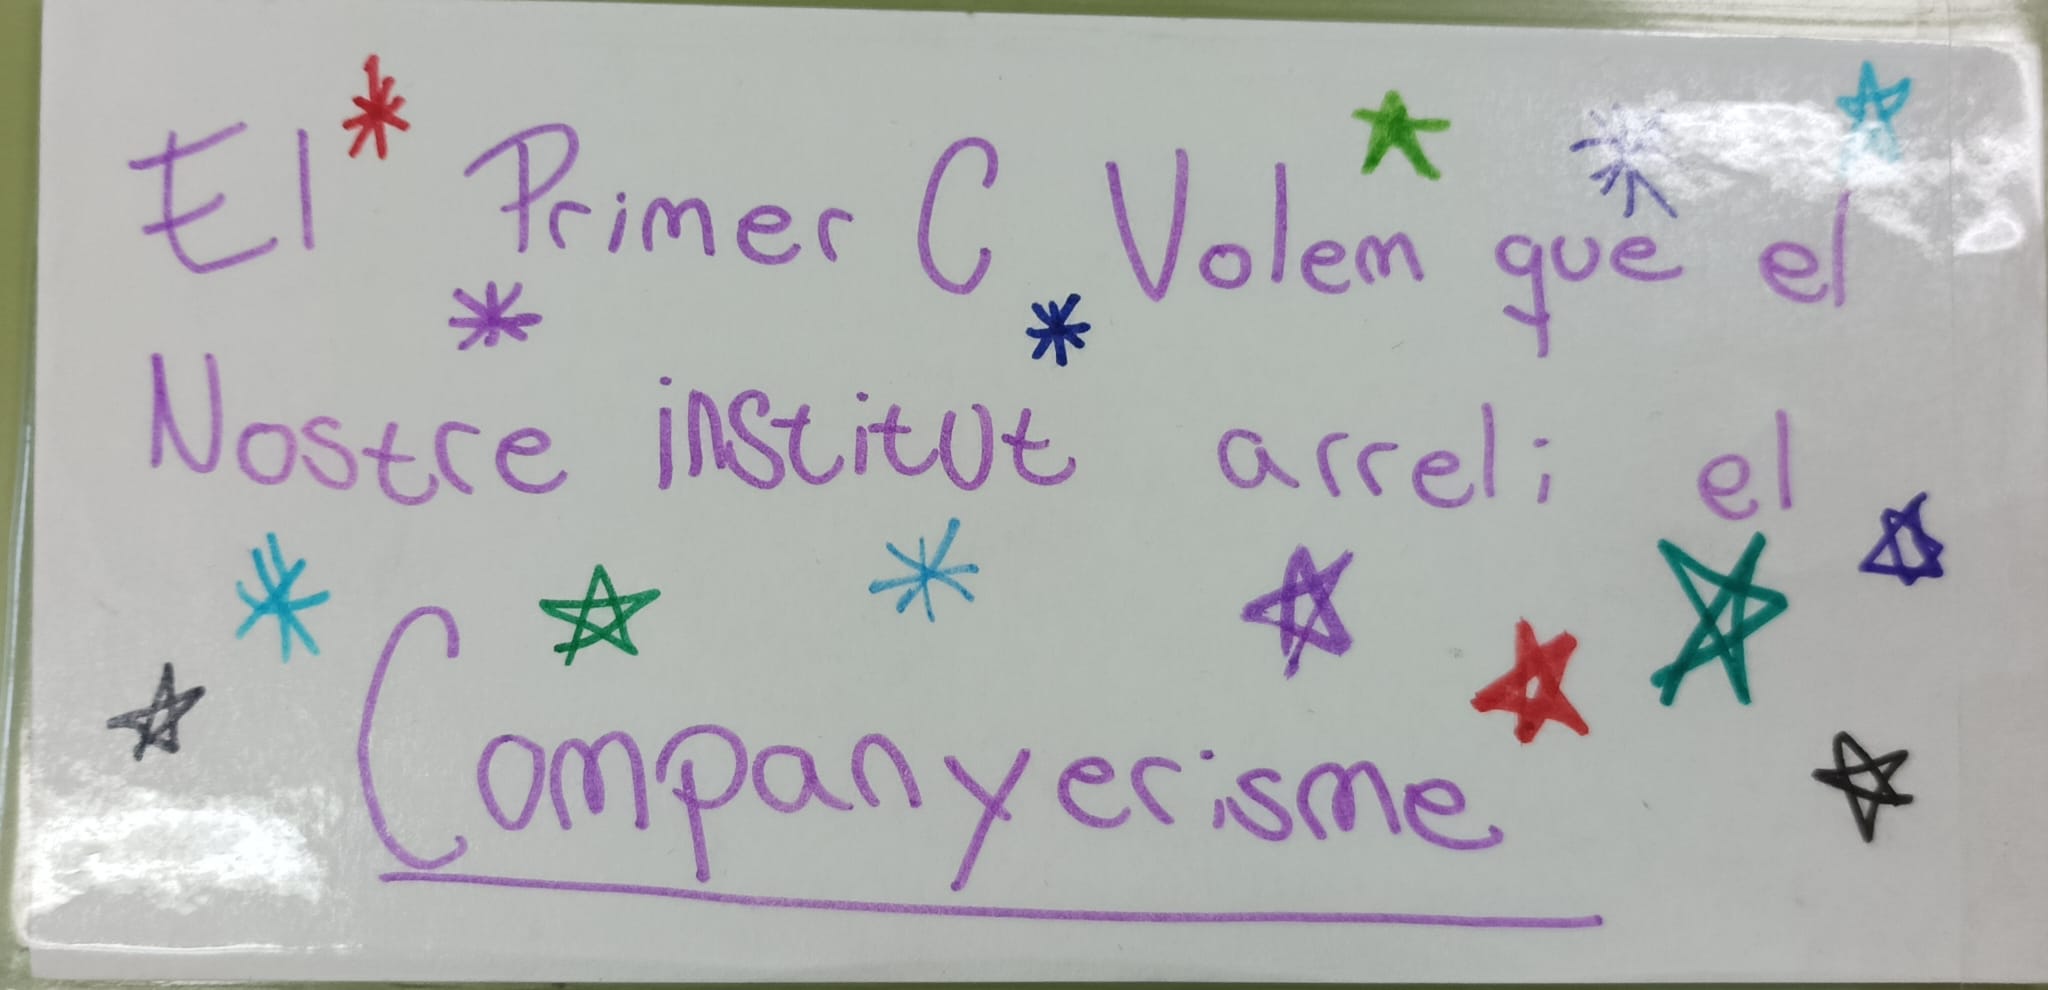 El Primer C Volem que el
Nostre institut arreli el
Companyerisme